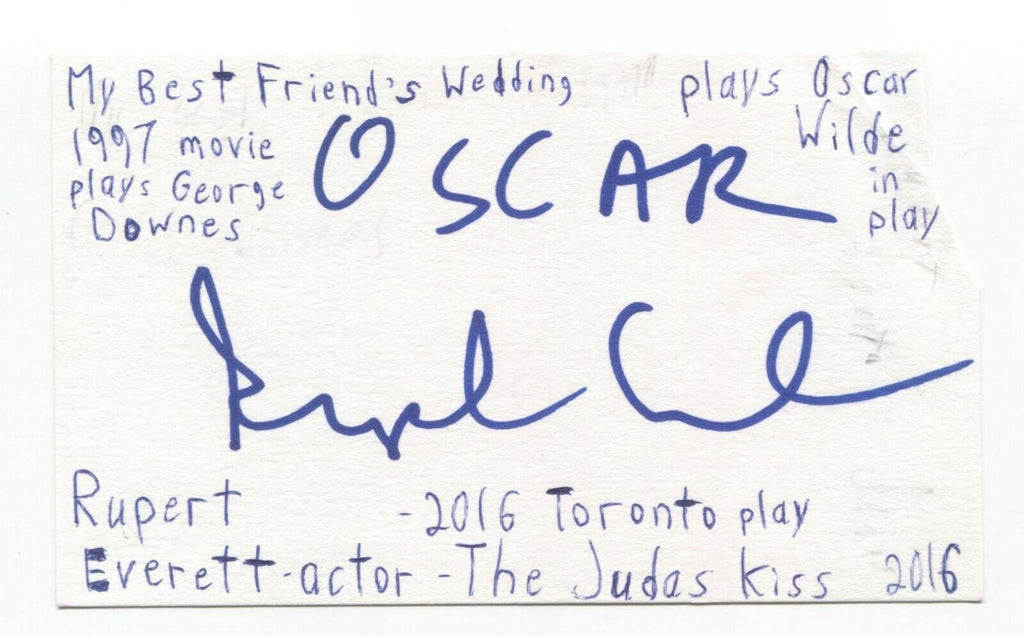 My Best Friend's Wedding
1997 movie
plays George
Downes
plays Oscar
Wilde
in
play
OSCAR
Rupert
-2016 Toronto play
Everett-actor-The Judas Kiss 2016